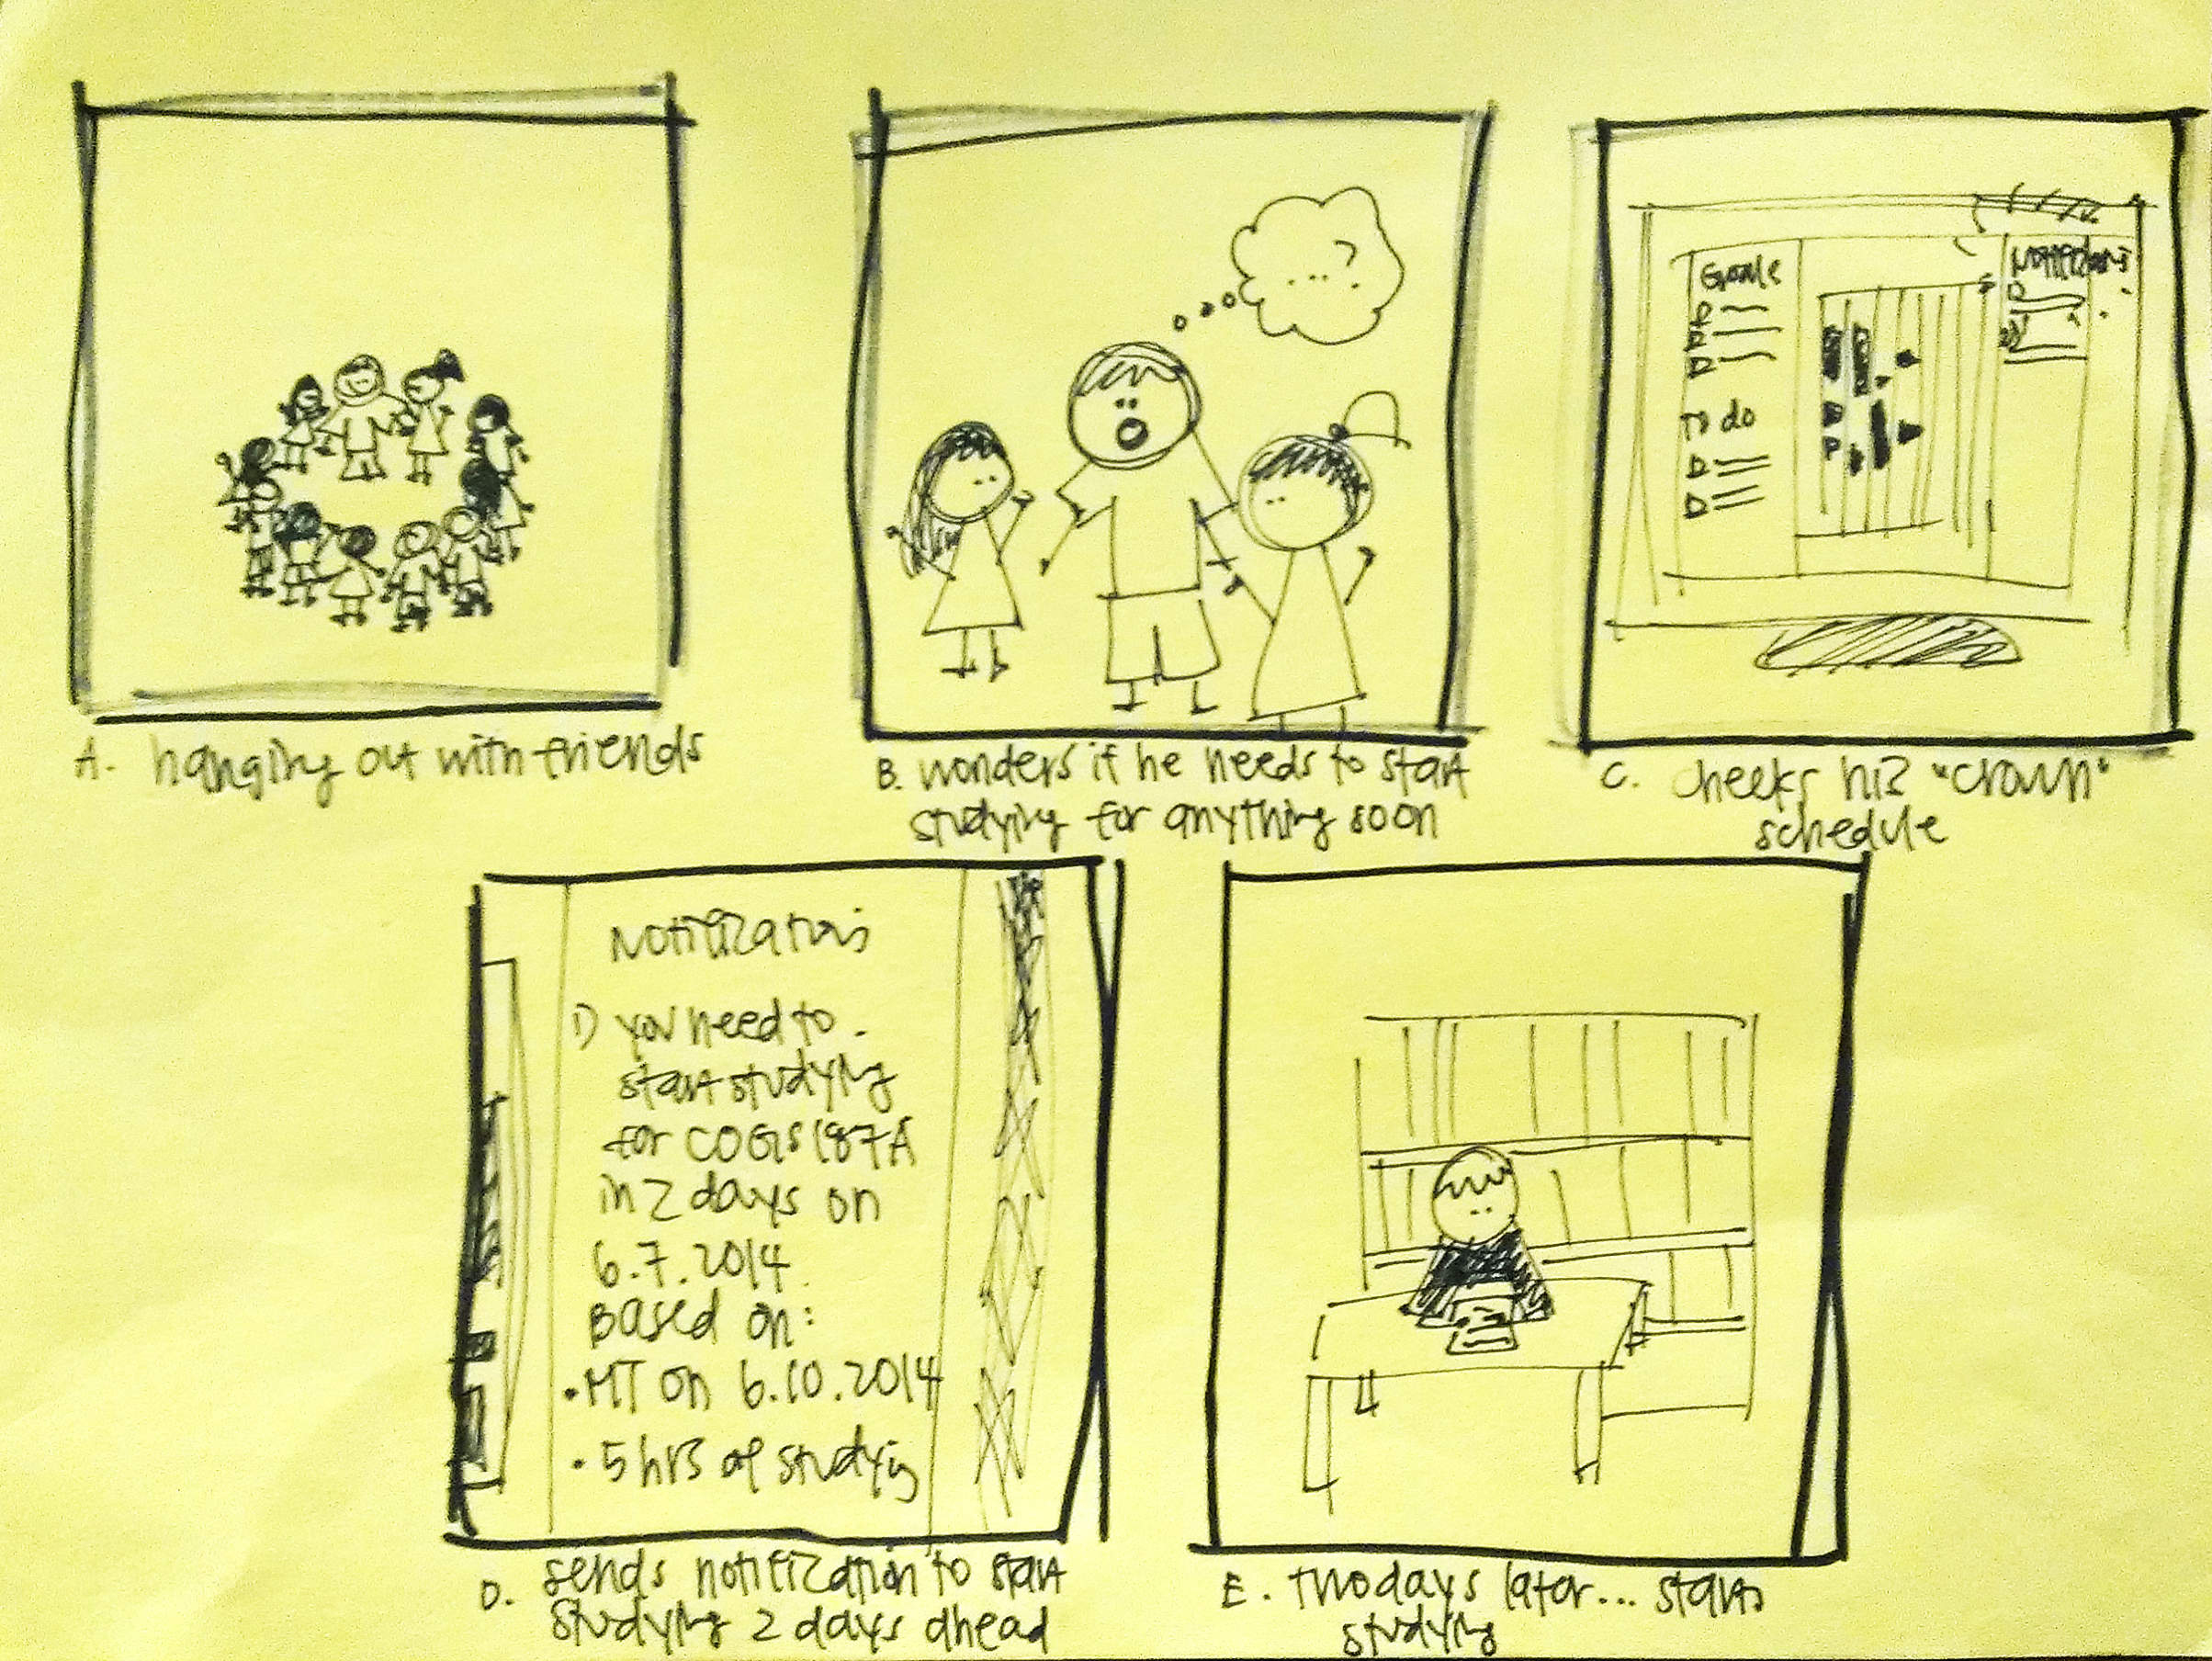 A. hanging out with friends
....?
B. wonders if he needs to start
studying for anything soon
Goals
To do
Notifications
C. checks his "crown"
schedule
Notifications
1) you need to
start studying
for COGS 187A
in 2 days on
6.7.2014
Based on:
• MT on 6.10.2014
• 5 hrs of studying
D. sends notification to start
studying 2 days ahead
E. two days later... starts
studying